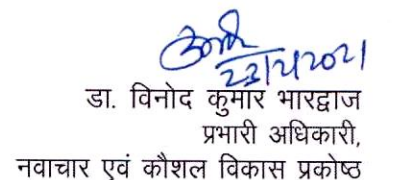 23/4/2021
डा. विनोद कुमार भारद्वाज
प्रभारी अधिकारी,
नवाचार एवं कौशल विकास प्रकोष्ठ